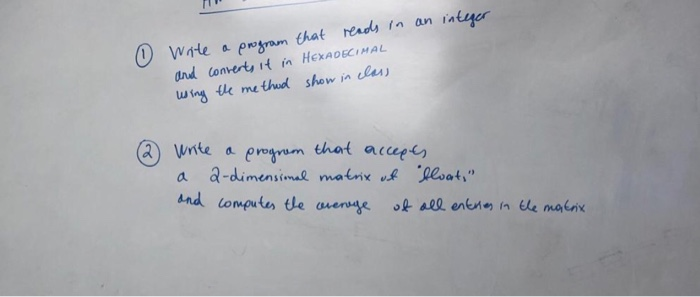 ① Write a program that reads in an integer
and converts it in HEXADECIMAL
using the method show in class
② Write a program that accepts
a 2-dimensional matrix of "floats"
and computes the average of all entries in the matrix